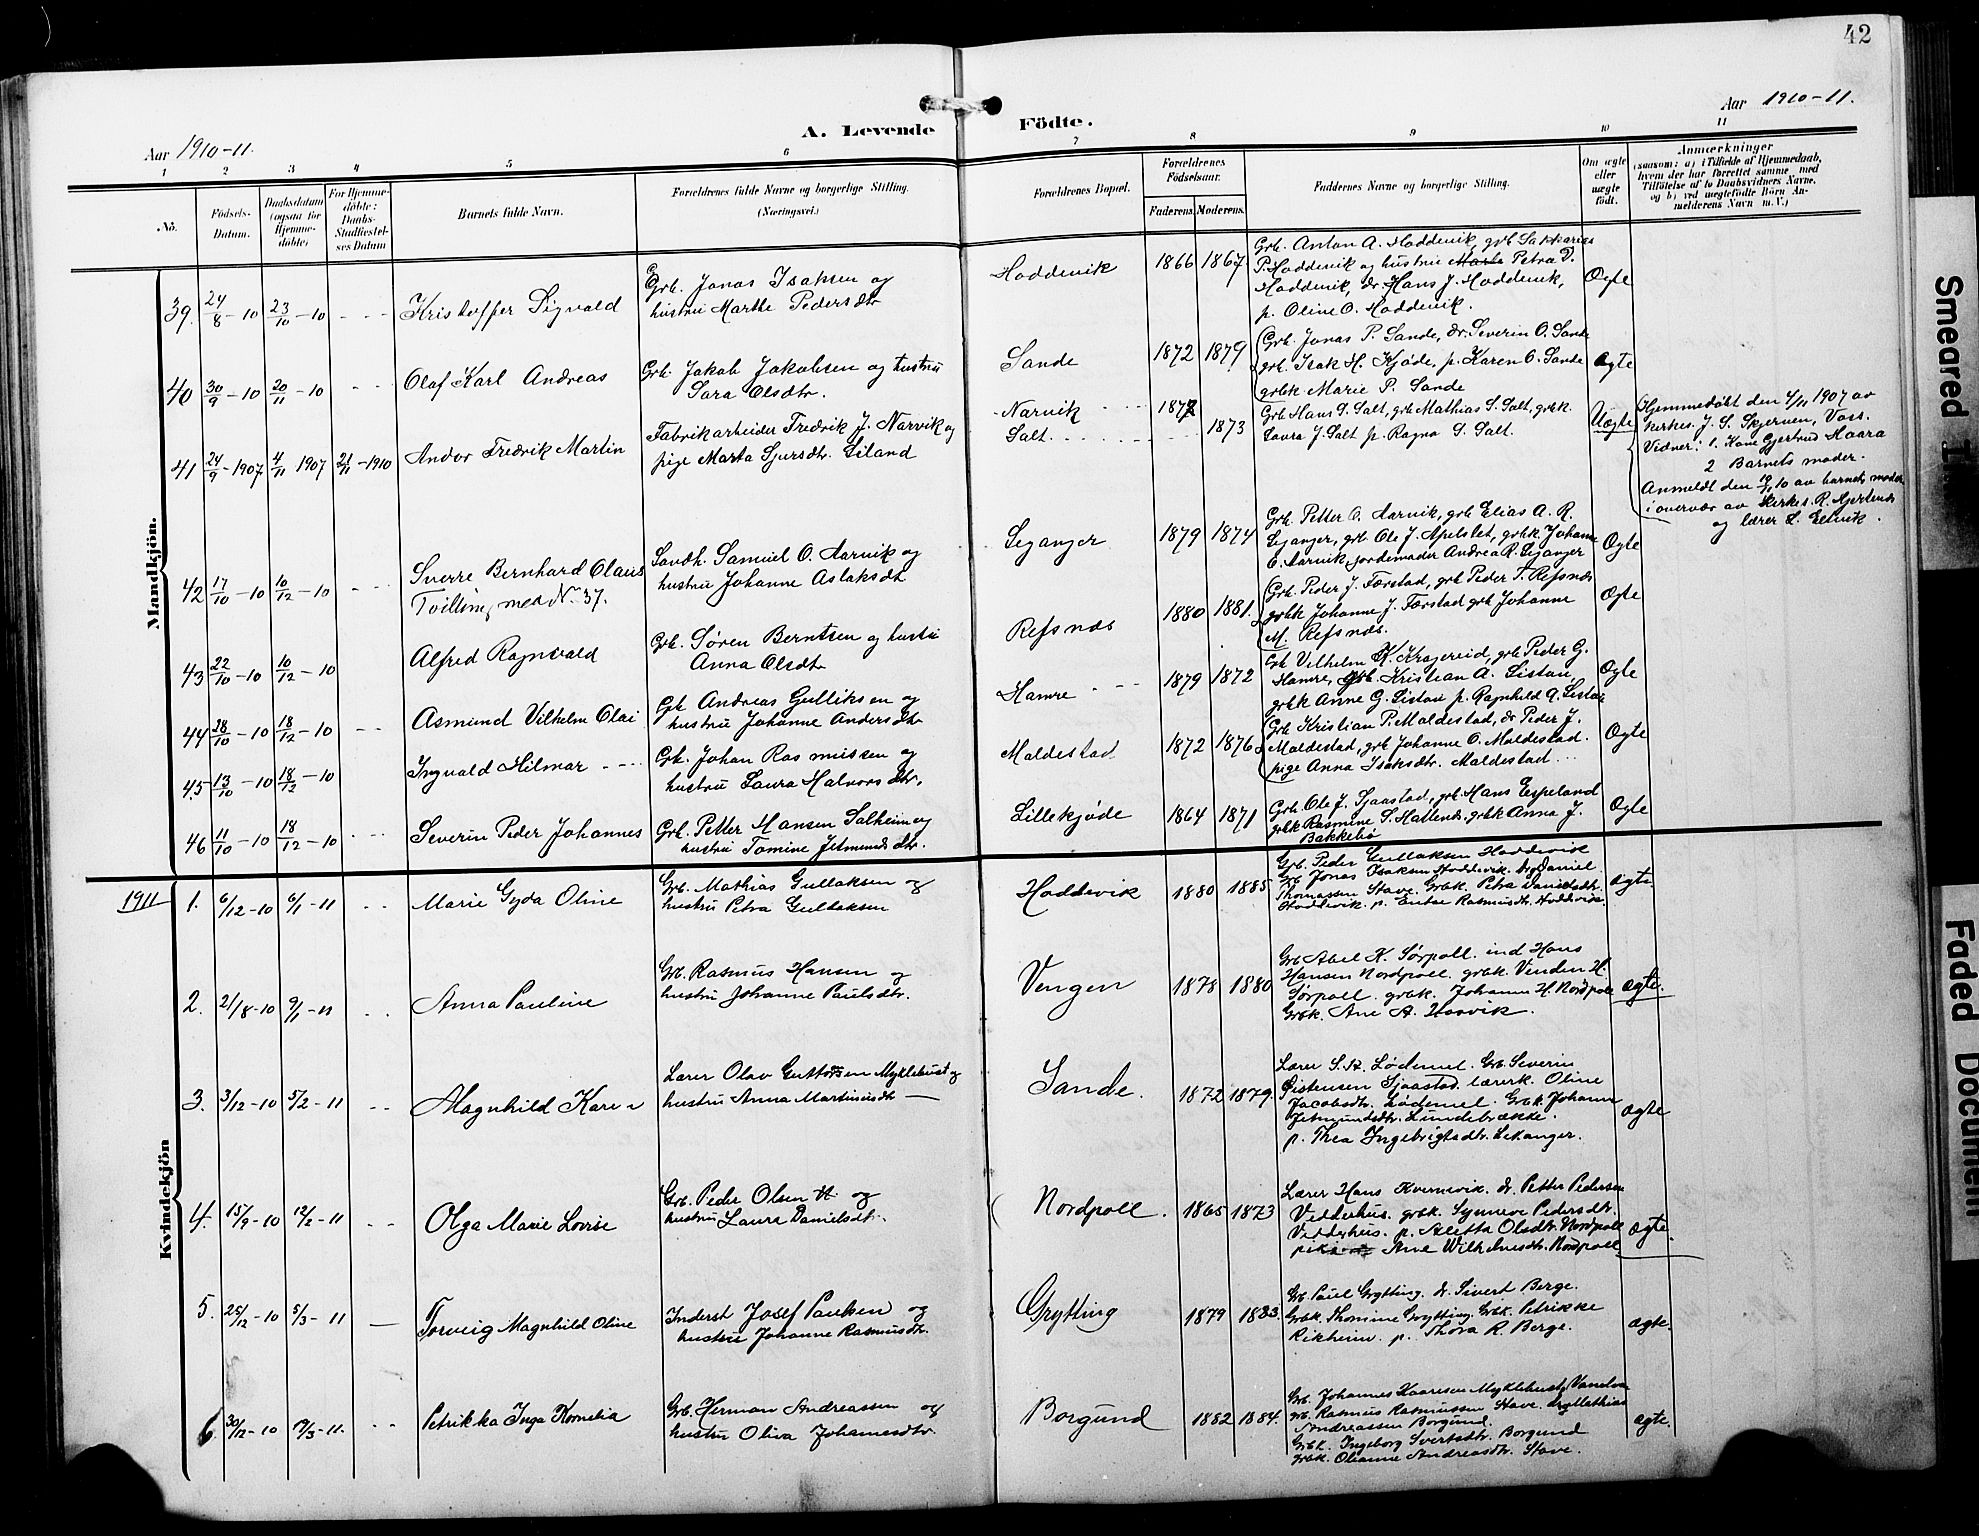 42
Aar 1910-11.
A. Levende Födte.
Aar 1910-11.
1 2 3 4 5 6 7 8 9 10 11
No.
Födsels-Datum.
Daabsdatum (ogsaa for Hjemme-döbte)
For Hjemme-döbte: Daabs-Stadfæstel-ses Datum
Barnets fulde Navn.
Forældrenes fulde Navne og borgerlige Stilling. (Næringsvei.)
Forældrenes Bopæl.
Forældrenes Födselsaar.
Faderens. Moderens.
Faddernes Navne og borgerlige Stilling.
Om ægte eller uægte födt.
Anmærkninger
(saasom: a) i Tilfælde af Hjemmedaab,
hvem der har forrettet samme, med
Tilföielse af to Daabsvidners Navne,
og b) ved uægtefödte Börn An-
melderens Navn m. V.)
Mandkjön.
39. 24/8-10 23/10-10 Kristoffer Sigvald
Grb. Jonas Isaksen og
hustru Marthe Pedersdtr
Hoddevik 1866 1867
Grb. Anton A. Hoddevik, grb Sakkarias
P. Hoddevik og hustru Petra D.
Hoddevik, dr Hans J. Hoddevik,
p. Oline O. Hoddevik.
Ægte
40 30/9-10 20/11-10 Olaf Karl Andreas
Grb. Jakob Jakobsen og hustru
Sara Olsdtr.
Sande 1872 1879
Grb. Jonas P. Sande, dr. Severin O. Sande
grb. Isak H. Kjøde, p. Karen O. Sande
grbk Marie P. Sande
Ægte
41 24/9-1907 4/11 1907 21/11-1910 Andor Fredrik Martin
Fabrikarbeider Fredrik J. Narvik og
pige Marta Sjursdtr. Eiland
Narvik 1877
Salt 1873
Grb Hans S. Salt, grb Mathias S. Salt, grbk.
Laura J. Salt p. Ragna S. Salt.
Uægte
Hjemmedøbt den 4/11 1907 av
kirkes. J. S. Skjerven, Voss.
Vidner: 1. Kone Gjertrud Haara
2 Barnets moder.
Anmeldt den 19/11 10 av barnets moder
i overvær av kirkes. R. Hjertenes
og lærer L. Eltvik.
42 17/10-10 10/12-10 Sverre Bernhard Olaus
Tvilling med No 37.
Sandh. Samuel O. Aarvik og
hustru Johanne Aslaksdt
Leganger 1879 1874
Grb. Petter O. Aarvik, grb Elias A. R.
Leganger, grb. Ole J. Apelset, grbk Johanne
O. Aarvik, jordemoder Andrea R. Leganger
Ægte
43 22/10-10 10/12-10 Alfred Ragnvald
Grb. Søren Berntsen og hustru
Anna Olsdtr
Refsnæs 1880 1881.
Grb. Peder J. Færstad, grb Peder T. Refsnæs
grbk Johanne J. Færstad grb Johanne
M. Refsnæs.
Ægte
44 28/10-10 18/12-10 Asmund Vilhelm Olai
Grb Andreas Gulliksen og
hustru Johanne Andersdtr
Hamre 1879 1872
Grb Vilhelm K. Kragereid, grb Peder G.
Hamre, grb. Kristian A. Listau,
grbk Anne G. Listau p. Ragnhild A. Listau
Ægte
45 13/10-10 18/12-10 Ingvald Hilmar
Grb. Johan Rasmussen og
hustru Laura Halvorsdtr,
Maldestad 1872 1876
Grb Kristian P. Maldestad, dr Peder J.
Maldestad, grb Johanne O. Maldestad.
pige Anna Isaksdtr. Maldestad
Ægte
46 11/10-10 18/12-10 Severin Peder Johannes
Grb. Petter Hansen Salheim og
hustru Tomine Jetmundsdtr.
Lillekjøde 1864 1871
Grb. Ole J. Sjaastad, grb Hans Espeland
grbk Rasmine S. Hatlenes, grbk Anna J.
Bakkebø
Ægte
1911
Kvindekjön
1. 6/12-10 6/1-11 Marie Gyda Oline
Grb. Mathias Gullaksen og
hustru Petra Gullaksen
Hoddevik 1880 1885
Grb. Peder Gullaksen Hoddevik
Grb Jonas Isaksen Hoddevik. Daniel
Thomassen Stave. Grbk. Petra Danielsdtr.
Hoddevik. p. Rasmusdtr. Hoddevik.
ægte.
2. 21/8-10 9/1-11 Anna Pauline
Grb. Rasmus Hansen og
hustru Johanne Paulsdtr.
Vengen 1878 1880
Grb Abel K. Sørpoll. ind Hans
Hansen Nordpoll. grbk. Venden H.
Sørpoll. grbk. Johanne H. Nordpoll
Grbk. Ane A. Hosvik.
ægte.
3. 3/12-10 5/2-11 Magnhild Karen
Lærer Olav Guttormsen Myklebust og
hustru Anna Martinusdtr
Sande. 1872 1879.
Lærer S. A. Lødemel. Grb Severin
Øistensen Sjaastad. lærerk. Oline
Jacobsdtr. Lødemel. Grbk. Johanne
Jetmundsdtr. Lundebrække.
p. Thea Ingebrigtsdtr. Lekanger.
ægte
4. 15/9-10 12/2-11 Olga Marie Lovise
Grb. Peder Olsen og
hustru Laura Danielsdtr.
Nordpoll. 1865 1873
Lærer Hans Kvernevik. dr. Petter Pedersen
Vedderhus. grbk. Synneve Pedersdtr.
Vedderhus. p. Aletta Olsdtr. Nordpoll
Ane Wilhelmsdtr. Nordpoll
ægte.
5. 25/12-10 5/3-11 Torveig Magnhild Oline
Inderst Josef Paulsen og
hustru Johanne Rasmusdtr.
Grytting 1879 1883.
Grb Paul Grytting. dr. Sivert Berge.
Grbk. Thomine Grytting. Grbk. Petrikke
Rikheim. p. Thora R. Berge.
ægte.
6. 30/12-10 19/3-11. Petrikka Inga Kornelia
Grb. Herman Andreassen og
hustru Oliva Johannesdtr.
Borgund 1882 1884.
Grb. Johannes Kaaresen Myklebust, Vanelven
grb. Rasmus Rasmussen Stave. Mathias
Andreassen Borgund.
Grbk. Ingeborg Sivertsdtr. Borgund
Grbk. Olianne Andreasdtr. Stave.
ægte.
Smeared
Faded Document